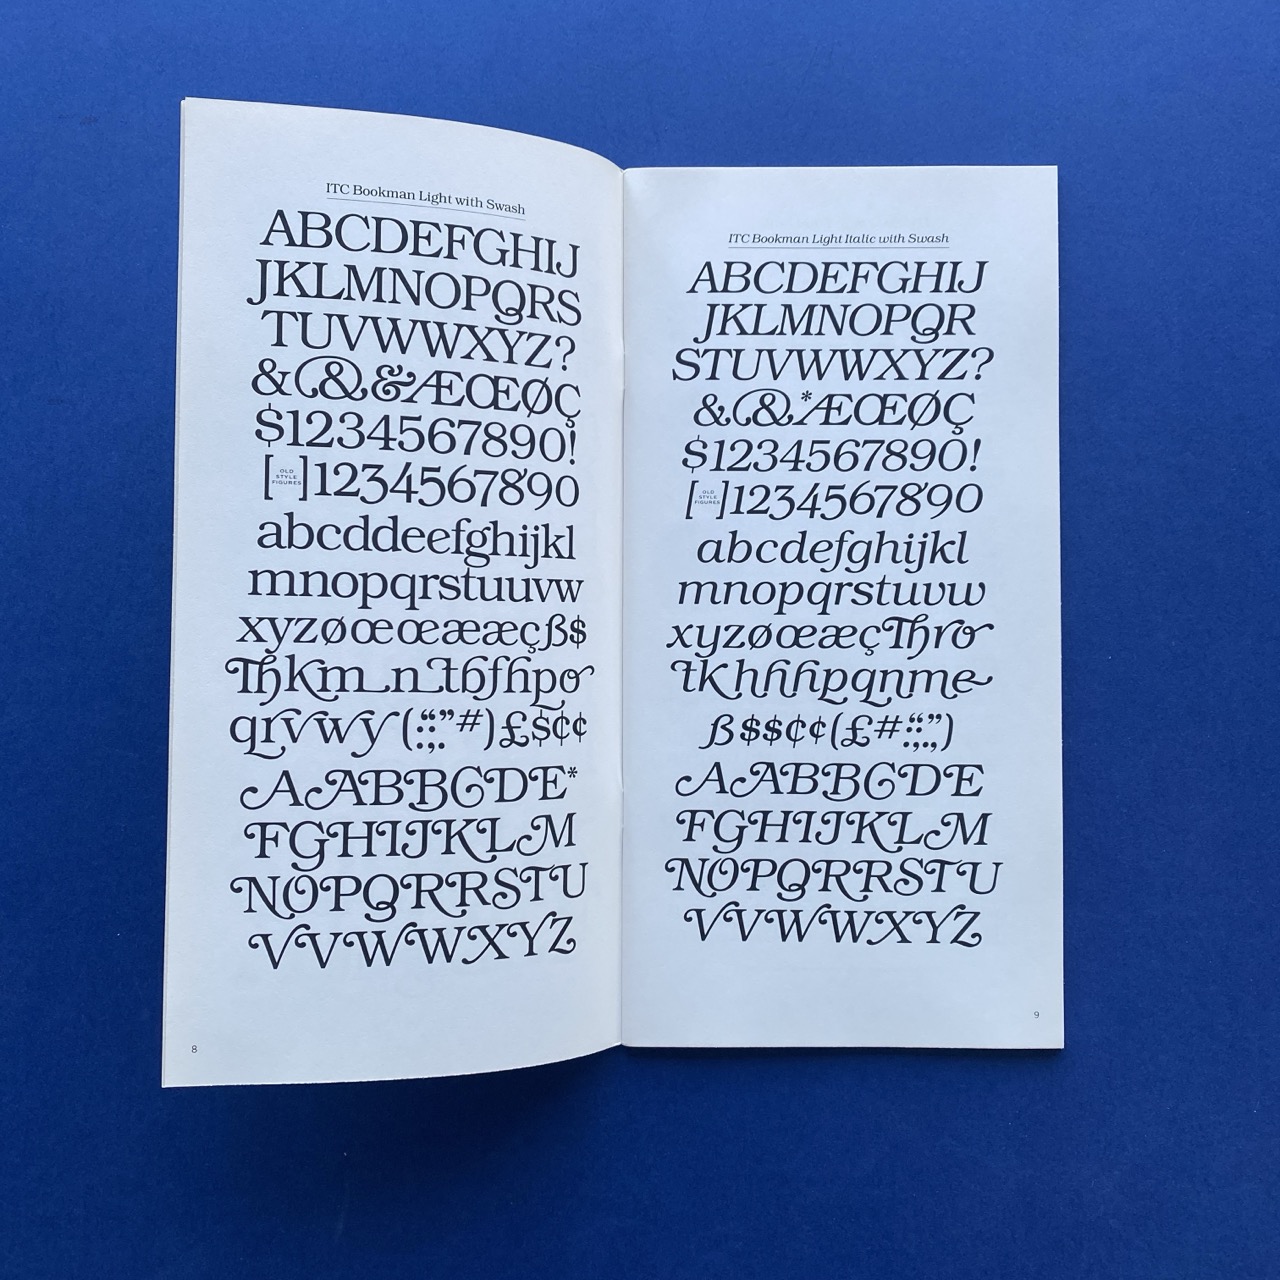 ITC Bookman Light with Swash
ABCDEFGHIJ
JKLMNOPQRS
TUVWWXYZ?
&&&ÆŒØÇ
$1234567890!
[OLD STYLE FIGURES]1234567890
abcddeefghijkl
mnopqrstuuvw
xyzøœœææçß$
Thkm_n_thfhpo
qrvwy(:;“”#)£$¢¢
AABBCDE*
FGHIJKLM
NOPQRRSTU
VVWWXYZ
8
ITC Bookman Light Italic with Swash
ABCDEFGHIJ
JKLMNOPQR
STUVWWXYZ?
&&*ÆŒØÇ
$1234567890!
[OLD STYLE FIGURES]1234567890
abcdefghijkl
mnopqrstuvw
xyzøœæçThro
tkhhhpqnme
ß$$¢¢(£#:;“”)
AABBCDE
FGHIJKLM
NOPQRRSTU
VVWWXYZ
9